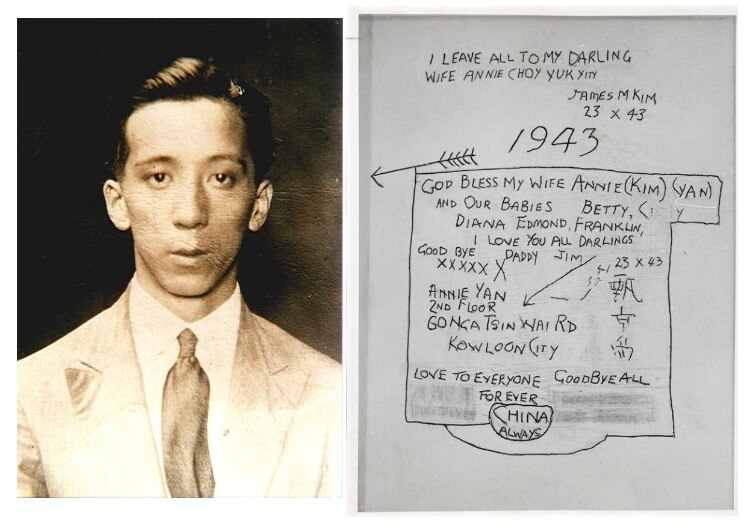 I LEAVE ALL TO MY DARLING
WIFE ANNIE CHOY YUK YIN
JAMES M KIM
23 X 43
1943
GOD BLESS MY WIFE ANNIE (KIM) (YAN)
AND OUR BABIES BETTY,
DIANA EDMOND, FRANKLIN,
I LOVE YOU ALL DARLINGS
GOOD BYE DADDY JIM
XXXXX X 23 X 43
ANNIE YAN 甄
2ND FLOOR
NGA TSIN WAI RD
KOWLOON CITY
LOVE TO EVERYONE GOODBYE ALL
FOREVER
CHINA
ALWAYS